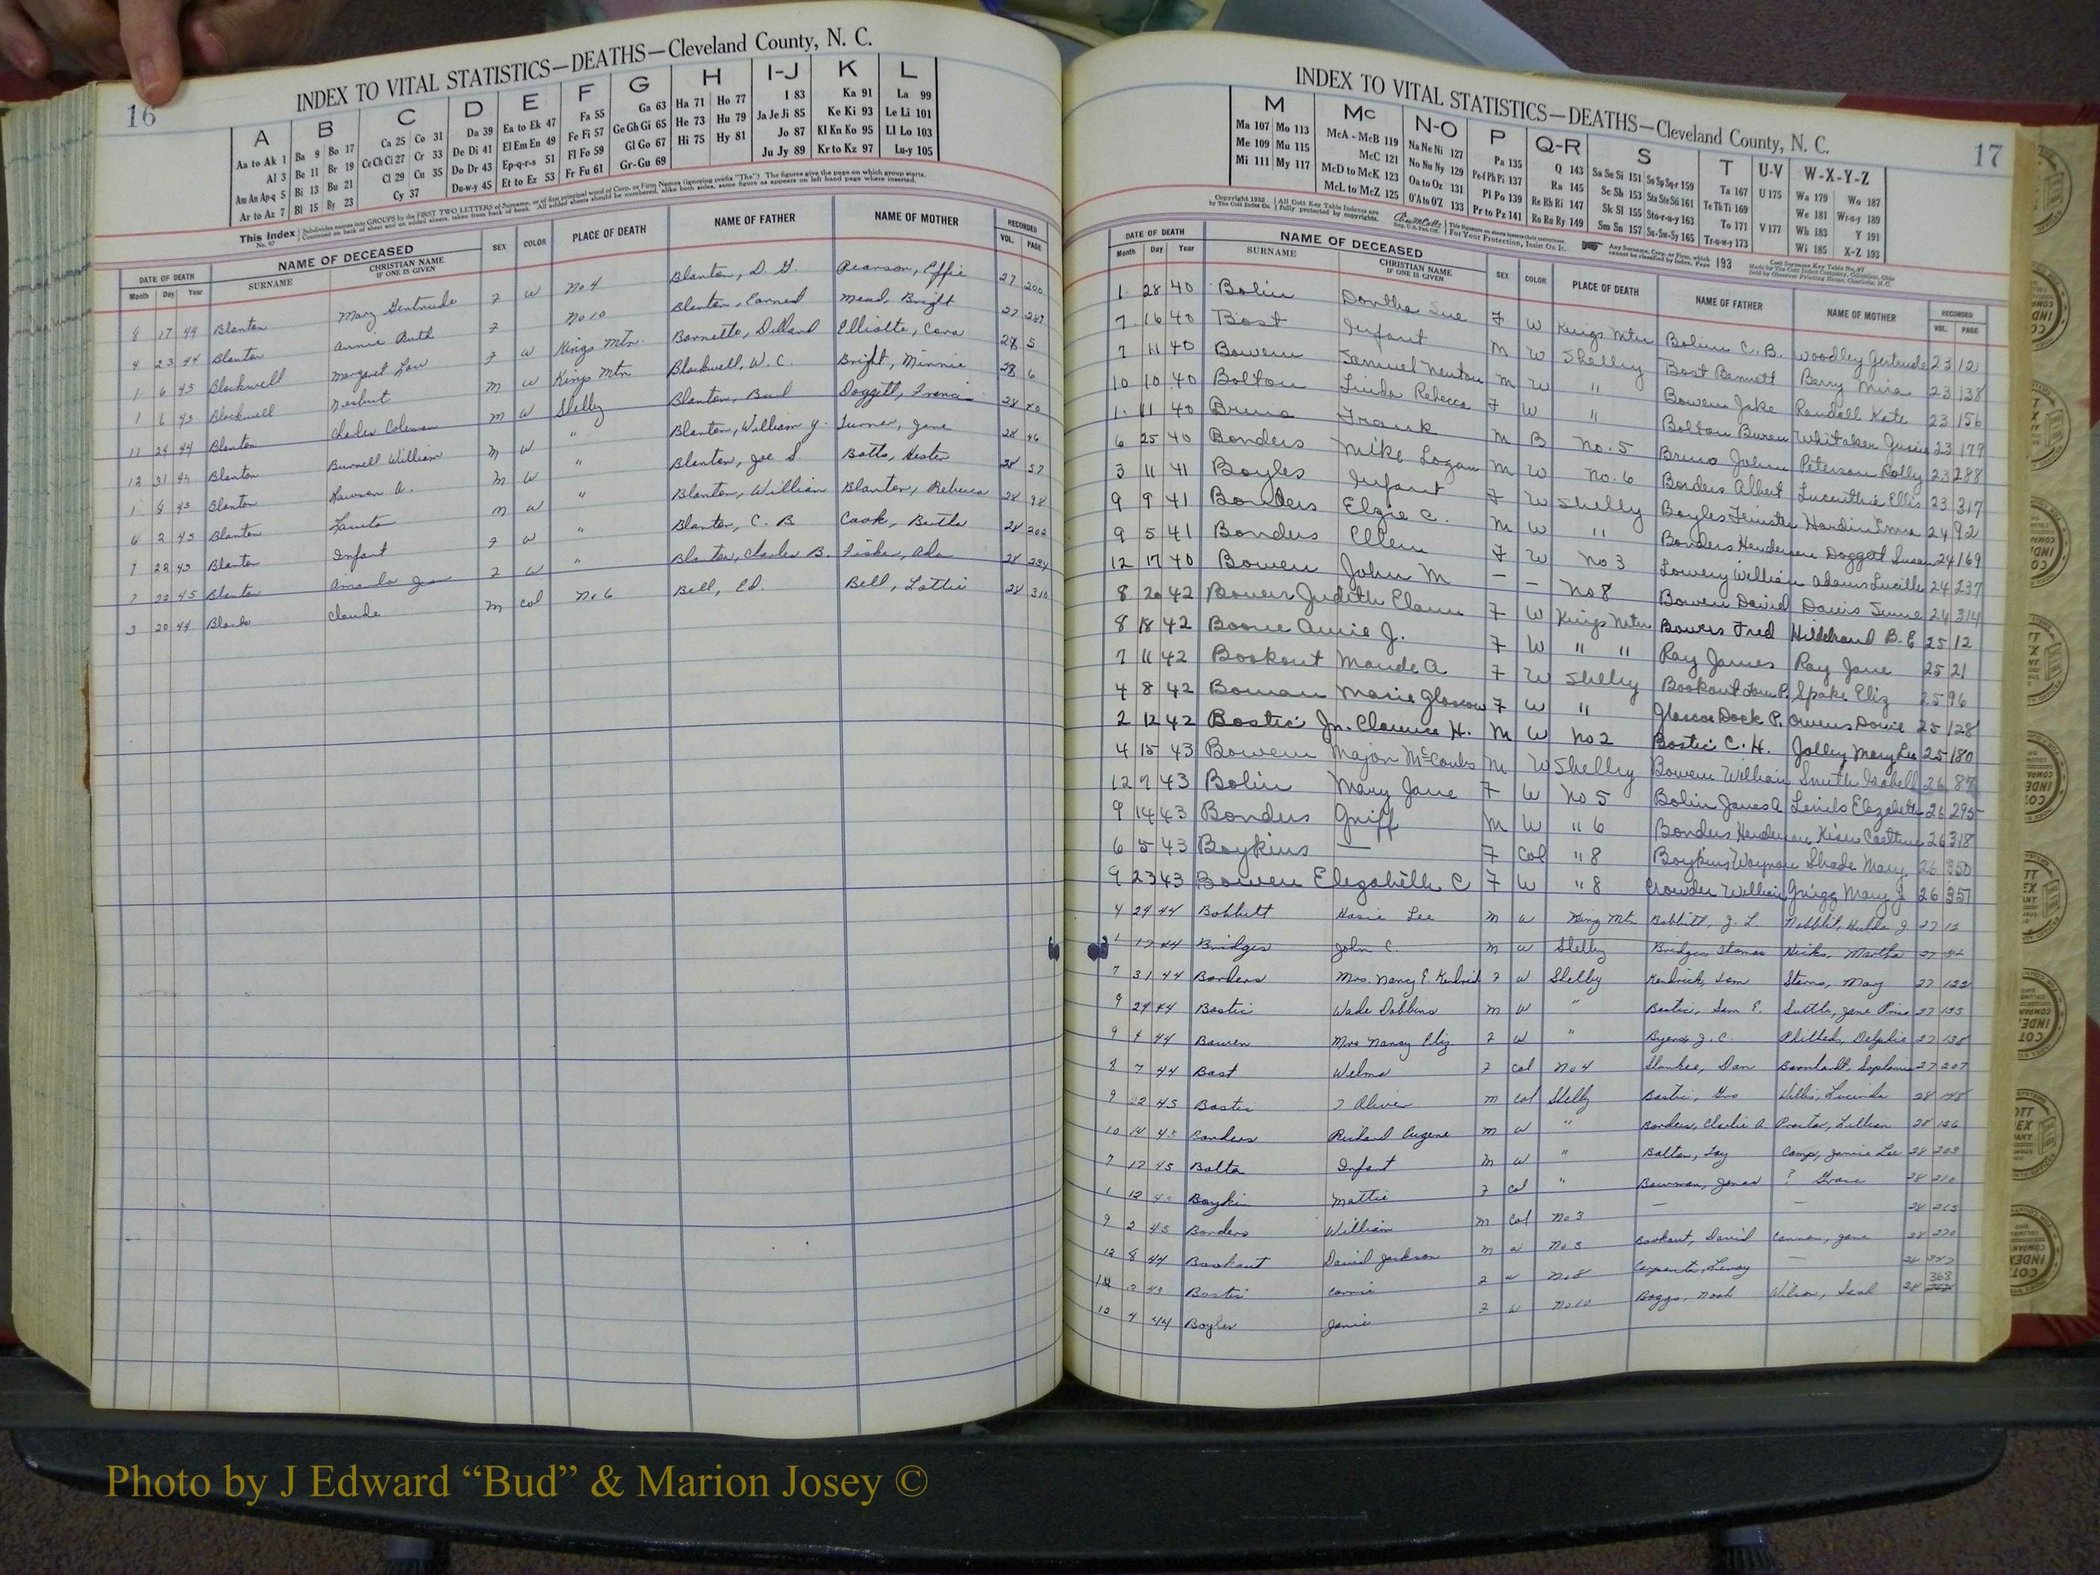 16
INDEX TO VITAL STATISTICS—DEATHS—Cleveland County, N. C.
A B C D E F G H I-J K L
Aa to Ak 1 Ba 9 Bo 17 Ca 25 Co 31 Da 39 Ea to Ek 47 Fa 55 Ga 63 Ha 71 Ho 77 I 83 Ka 91 La 99
Al 3 Be 11 Br 19 Ce Ch Ci 27 Cr 33 De Di 41 El Em En 49 Fe Fi 57 Ge Gh Gi 65 He 73 Hu 79 Ja Je Ji 85 Ke Ki 93 Le Li 101
Am An Ap-q 5 Bi 13 Bu 21 Cl 29 Cu 35 Do Dr 43 Ep-q-r-s 51 Fl Fo 59 Gl Go 67 Hi 75 Hy 81 Jo 87 Kl Kn Ko 95 Ll Lo 103
Ar to Az 7 Bl 15 By 23 Cy 37 Du-w-y 45 Et to Ez 53 Fr Fu 61 Gr-Gu 69 Ju Jy 89 Kr to Kz 97 Lu-y 105
This Index No. 97
DATE OF DEATH NAME OF DECEASED SEX COLOR PLACE OF DEATH NAME OF FATHER NAME OF MOTHER RECORDED
Month Day Year SURNAME CHRISTIAN NAME IF ONE IS GIVEN VOL. PAGE
8 17 44 Blanton Mary Gertrude F W No 4 Blanton, D. G. Pearson, Effie 27 200
4 23 44 Blanton Annie Ruth F No 10 Blanton, Earned Mead, Bright 27 287
1 6 45 Blackwell Margaret Lou F W Kings Mtn. Barnette, Dillard Elliotte, Cora 28 5
1 6 45 Blackwell Nesbit M W Kings Mtn Blackwell, W. C. Bright, Minnie 28 6
11 24 44 Blanton Charles Coleman M W Shelby Blanton, Bud Doggett, Francis 28 40
12 31 44 Blanton Burnell William M W " Blanton, William Y. Turner, Jane 28 46
1 8 45 Blanton Lawson A. M W " Blanton, Joe S. Botts, Hester 28 57
6 2 45 Blanton Lawton M W " Blanton, William Blanton, Rebecca 28 98
7 22 45 Blanton Infant F W " Blanton, C. B. Cook, Bertha 28 202
7 20 45 Blanton Amanda Jean F W " Blanton, Charles B. Fisher, Ada 28 234
3 20 44 Black Claude M Col No 6 Bell, Ed. Bell, Lottie 28 310
17
INDEX TO VITAL STATISTICS—DEATHS—Cleveland County, N. C.
M Mc N-O P Q-R S T U-V W-X-Y-Z
Ma 107 Mo 113 McA - McB 119 Na Ne Ni 127 Pa 135 Q 143 Sa Se Si 151 So Sp Sq-r 159 Ta 167 U 175 Wa 179 Wo 187
Me 109 Mu 115 McC 121 No Nu Ny 129 Pe-f Ph Pi 137 Ra 145 Sc Sh 153 Sta Ste Sti 161 Te Th Ti 169 We 181 Wr-u-y 189
Mi 111 My 117 McD to McK 123 Oa to Oz 131 Pl Po 139 Re Rh Ri 147 Sk Sl 155 Sto-r-u-y 163 To 171 V 177 Wh 183 Y 191
McL to McZ 125 O'A to O'Z 133 Pr to Pz 141 Ro Ru Ry 149 Sm Sn 157 Su-Sw-Sy 165 Tr-u-w-y 173 Wi 185 X-Z 193
DATE OF DEATH NAME OF DECEASED SEX COLOR PLACE OF DEATH NAME OF FATHER NAME OF MOTHER RECORDED
Month Day Year SURNAME CHRISTIAN NAME IF ONE IS GIVEN VOL. PAGE
1 28 40 Bolin Dortha Sue F W Kings Mtn Bolin C. B. Woodley Gertrude 23 121
7 16 40 Bost Infant M W Shelby Bost Bennett Berry Mira 23 138
7 11 40 Bowen Samuel Newton M W " Bowen Jake Randall Kate 23 156
10 10 40 Bolton Linda Rebecca F W " Bolton Buren Whitaker Gussie 23 179
1 11 40 Bruno Frank M B No. 5 Bruno John Peterson Rolly 23 288
6 25 40 Borders Mike Logan M W No. 6 Borders Albert Lucinthia Ellis 23 317
3 11 41 Boyles Infant F W Shelby Boyles Hardin 24 92
9 9 41 Borders Elzie C. M W " Borders Henderson Doggett Susan 24 169
9 5 41 Borders Ellen F W No 3 Lowery William Adams Lucille 24 237
12 17 40 Bowen John M — — No 8 Bowen David Davis June 24 314
8 20 42 Bowers Judith Elann F W Kings Mtn Bowers Fred Hildebrand B. E 25 12
8 18 42 Boone Annie J. F W " " Ray James Ray Jane 25 21
7 11 42 Bookout Maude A F W Shelby Bookout Tom P. Spake Eliz 25 96
4 8 42 Boman Marie Glascow F W " Glascoe Dock P. Owens Dovie 25 128
2 12 42 Bostic Jr. Clarence H. M W No 2 Bostic C. H. Jolley Mary Lee 25 180
4 15 43 Bowen Major McCombs M W Shelby Bowen William Smith Isabell 26 87
12 7 43 Bolin Mary Jane F W No 5 Bolin James A Elizabeth 26 295
9 14 43 Borders Griff M W " 6 Borders Henderson 26 318
6 5 43 Boykins — F Col " 8 Boykins Waymon Shade Mary 26 350
9 23 43 Bowen Elizabeth C F W " 8 Crowder William Grigg Mary J 26 357
4 24 44 Bobbitt Hasie Lee M W Kings Mtn Bobbitt, J. L. Hulda J 27 12
1 17 44 Bridges John C. M W Shelby Bridges Thomas Hicks, Martha 27
7 31 44 Borders Mrs. Nancy E. Kendrick F W Shelby Kendrick, Sam Starns, Mary 27 122
9 24 44 Bostic Wade Dobbins M W " Bostic, Sam E. Suttle, Jane Price 27 135
9 4 44 Bowen Mrs Nancy Eliz F W " Byers J. C. Philbeck, Delphie 27 138
8 7 44 Bost Welma F Col No 4 Dan 27 207
9 22 45 Bostic ? Oliver M Col Shelby Bostic, Gus Willis, Lucinda 28 148
10 14 45 Borders Richard Eugene M W " Borders, Charlie A Proctor, Lillian 28 156
7 17 45 Bolton Infant M W " Bolton, Fay Camp, Jannie Lee 28 203
1 12 45 Boykin Mattie F Col " Bowman, Jonas ? Grace 28 210
9 2 45 Borders William M Col No 3 — — 28 215
12 8 44 Bookout David Jackson M W No 5 Bookout, David Cannon, Jane 28 270
3 43 Bostic Connie F W No 8 Carpenter, — 28
12 4 44 Boyles Janie F W No 10 Boggs, Noah Wilson, Sarah 28 368
Photo by J Edward “Bud” & Marion Josey ©